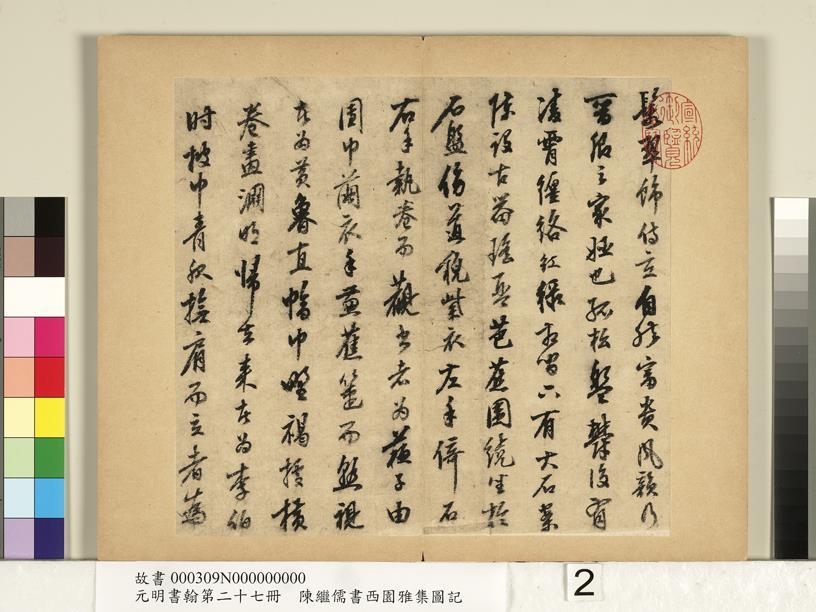 鬟翠飾侍立自然富貴風韻乃
晉卿之家姬也孤松盤鬱後有
凌霄纏絡紅綠相間下有大石案
陳設古器瑤琴芭蕉圍繞坐於
石盤傍道帽紫衣左手倚石
右手執卷而觀書者為蘇子由
團巾繭衣手秉蕉箑而熟視
者為黃魯直幅巾野褐據橫
卷畫淵明歸去來者為李伯
時披巾青服撫肩而立者為
宣統御覽
故書 000309N000000000
元明書翰第二十七冊 陳繼儒書西園雅集圖記
2